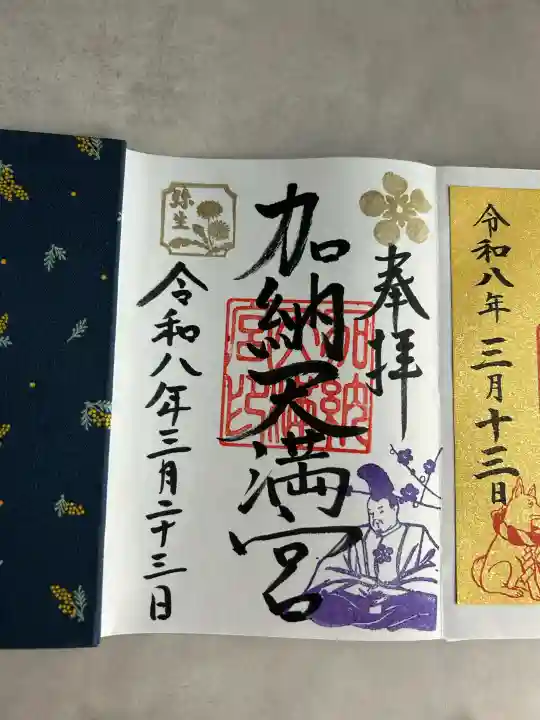 令和八年 三月十三日
奉拝
加納天満宮
加納天満宮印
弥生
令和八年三月二十三日